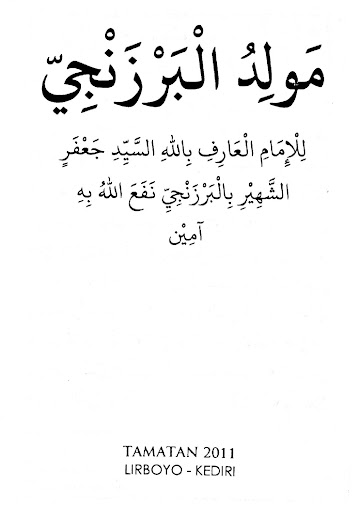 مَولِدُ الْبَرْزَنْجِيّ
لِلْإِمَامِ الْعَارِفِ بِاللهِ السَّيِّدِ جَعْفَرٍ
الشَّهِيْرِ بِالْبَرْزَنْجِيِّ نَفَعَ اللهُ بِهِ
آمِيْن
TAMATAN 2011
LIRBOYO - KEDIRI